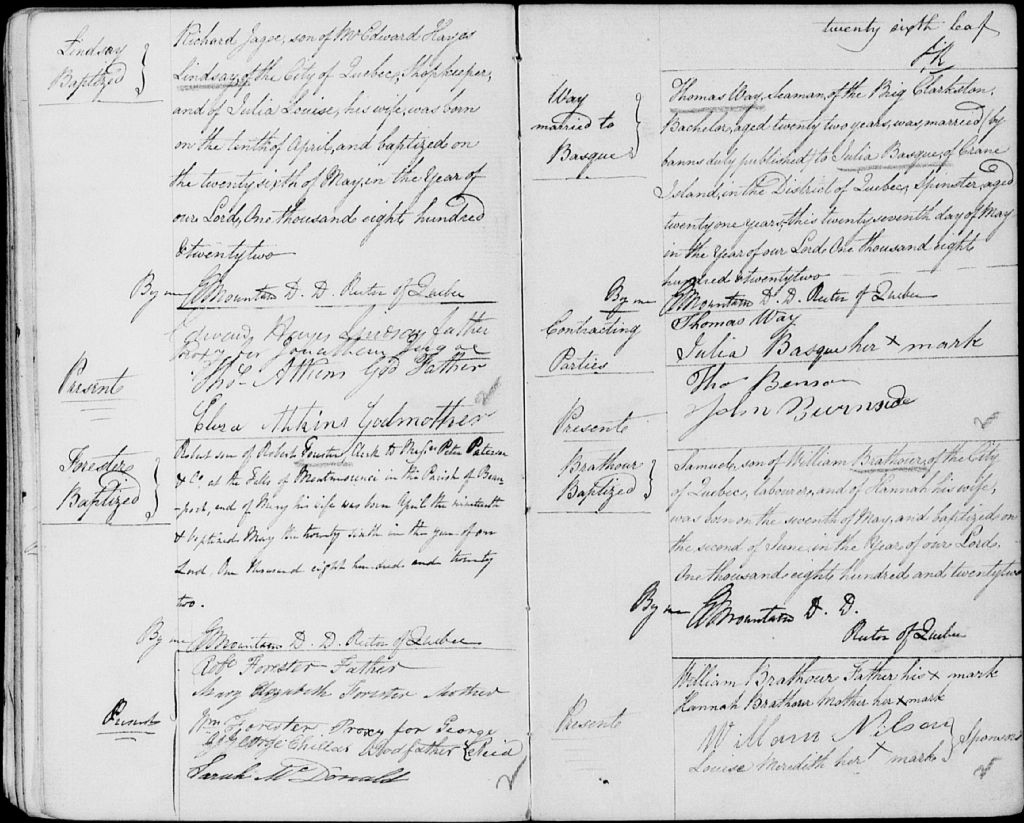 Lindsay
Baptized
Richard Jagoe, son of Mr Edward Hayes
Lindsay, of the City of Quebec, Shopkeeper,
and of Julia Louise, his wife, was born
on the tenth of April, and baptized on
the twenty sixth of May, in the Year of
our Lord, One thousand eight hundred
& twenty two
By me GJ Mountain D. D. Rector of Quebec
Edward Hayes Lindsay father
Proxy for Jonathan Jagoe
Present
Thos. Atkins God Father
Eliza Atkins Godmother
Forester
Baptized
Robert son of Robert Forester, Clerk to Messrs Peter Paterson
& Co at the Falls of Montmorenci in the Parish of Beau
-port, and of Mary his wife was born April the nineteenth
& baptized May the twenty sixth in the year of our
Lord One thousand eight hundred and twenty
two.
By me GJ Mountain D. D. Rector of Quebec
Robt Forester Father
Mary Elizabeth Forester Mother
Present
Wm Forester Proxy for George
George Chillas Godfather Reid
Sarah McDonald
twenty sixth leaf
Way
married to
Basque
Thomas Way, Seaman, of the Brig Clarkston,
Bachelor, aged twenty two years, was married (by
banns duly published) to Julia Basque, of Crane
Island, in the District of Quebec, Spinster, aged
twenty one years, this twenty seventh day of May
in the Year of our Lord One thousand eight
hundred & twenty two
By me GJ Mountain D. D. Rector of Quebec
Contracting
Parties
Thomas Way
Julia Basque her x mark
Present
Tho Benson
John Burnside
Brathour
Baptized
Samuel, son of William Brathour, of the City
of Quebec, labourer, and of Hannah his wife,
was born on the seventh of May, and baptized on
the second of June, in the Year of our Lord
One thousand eight hundred and twenty two
By me GJ Mountain D. D.
Rector of Quebec
Present
William Brathour Father his x mark
Hannah Brathour Mother her x mark
William Nilson
Louise Meredith her x mark
Sponsors